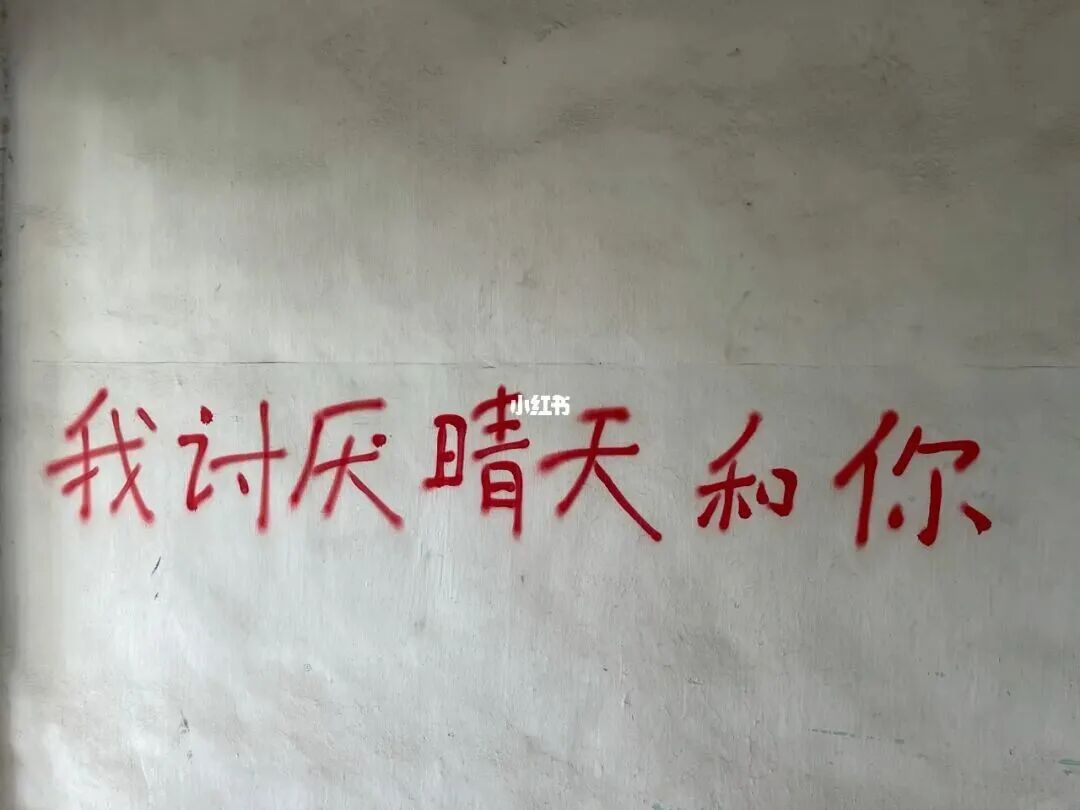 小红书
我讨厌晴天和你